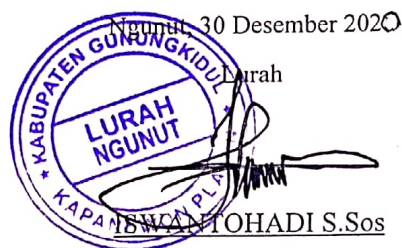 Ngunut, 30 Desember 2020
Lurah
KABUPATEN GUNUNGKIDUL
LURAH
NGUNUT
ISWANTOHADI S.Sos